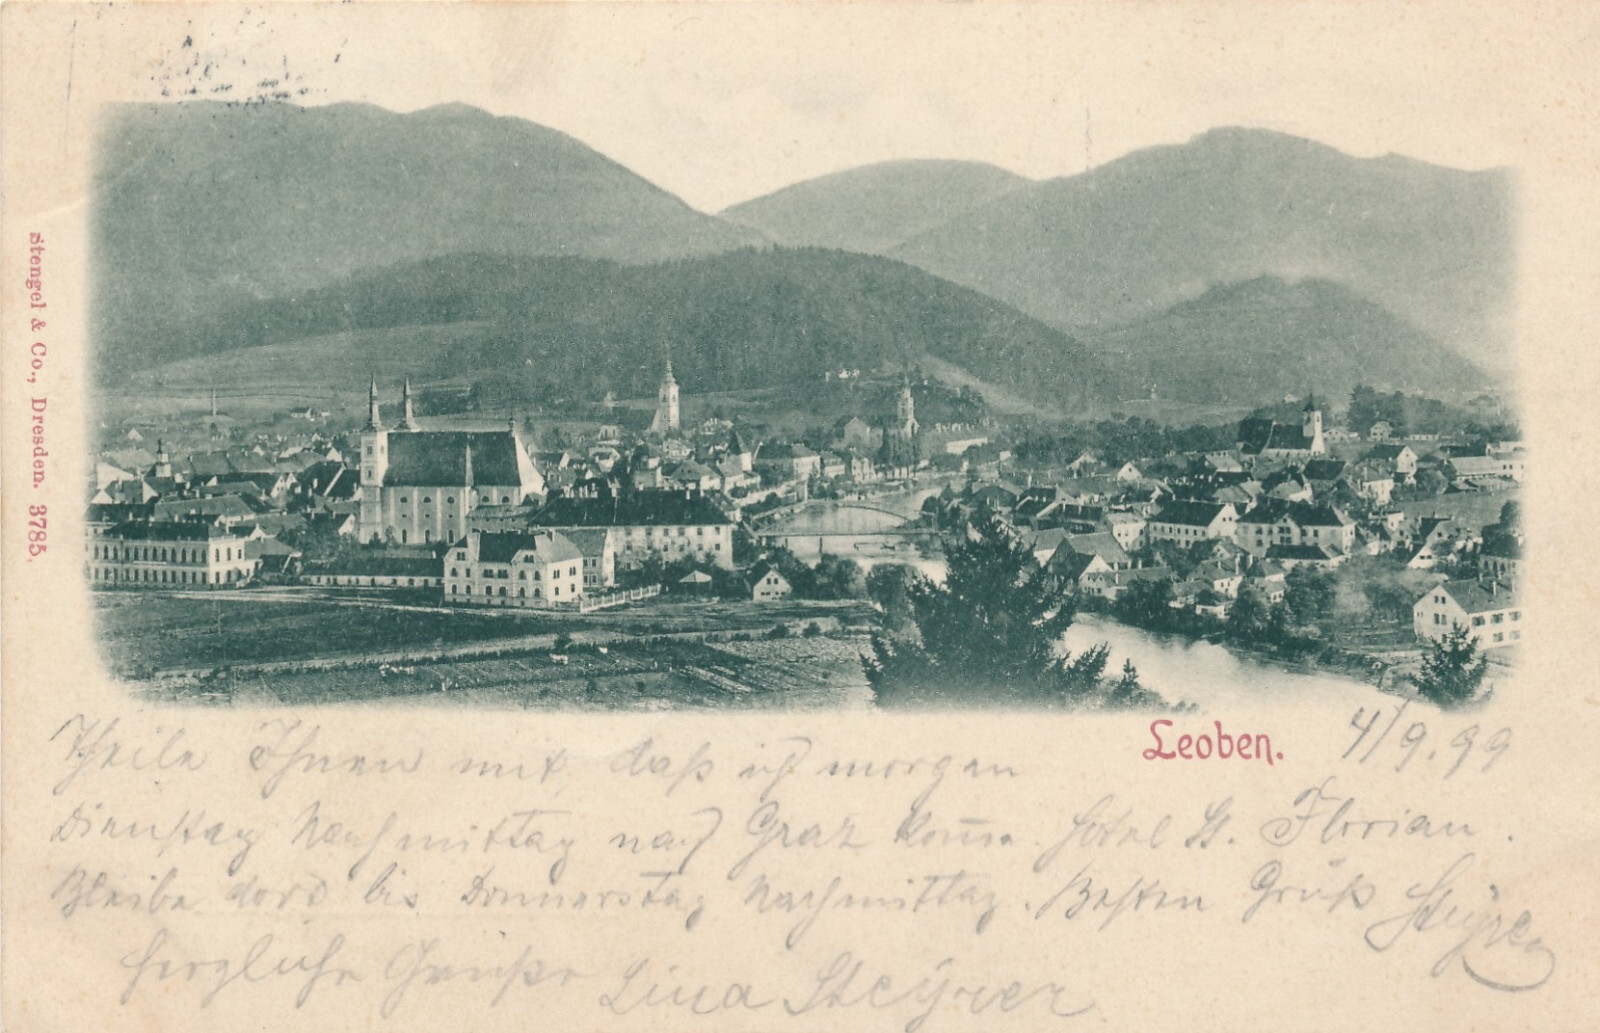 Stengel & Co., Dresden. 3785.
Leoben.
4/9.99
Theile Ihnen mit, daß ich morgen
Dienstag Nachmittag nach Graz kom̅e. Hotel St. Florian.
Bleibe dort bis Donnerstag Nachmittag. Besten Gruß Steyrer
herzliche Grüße Lina Steÿrer